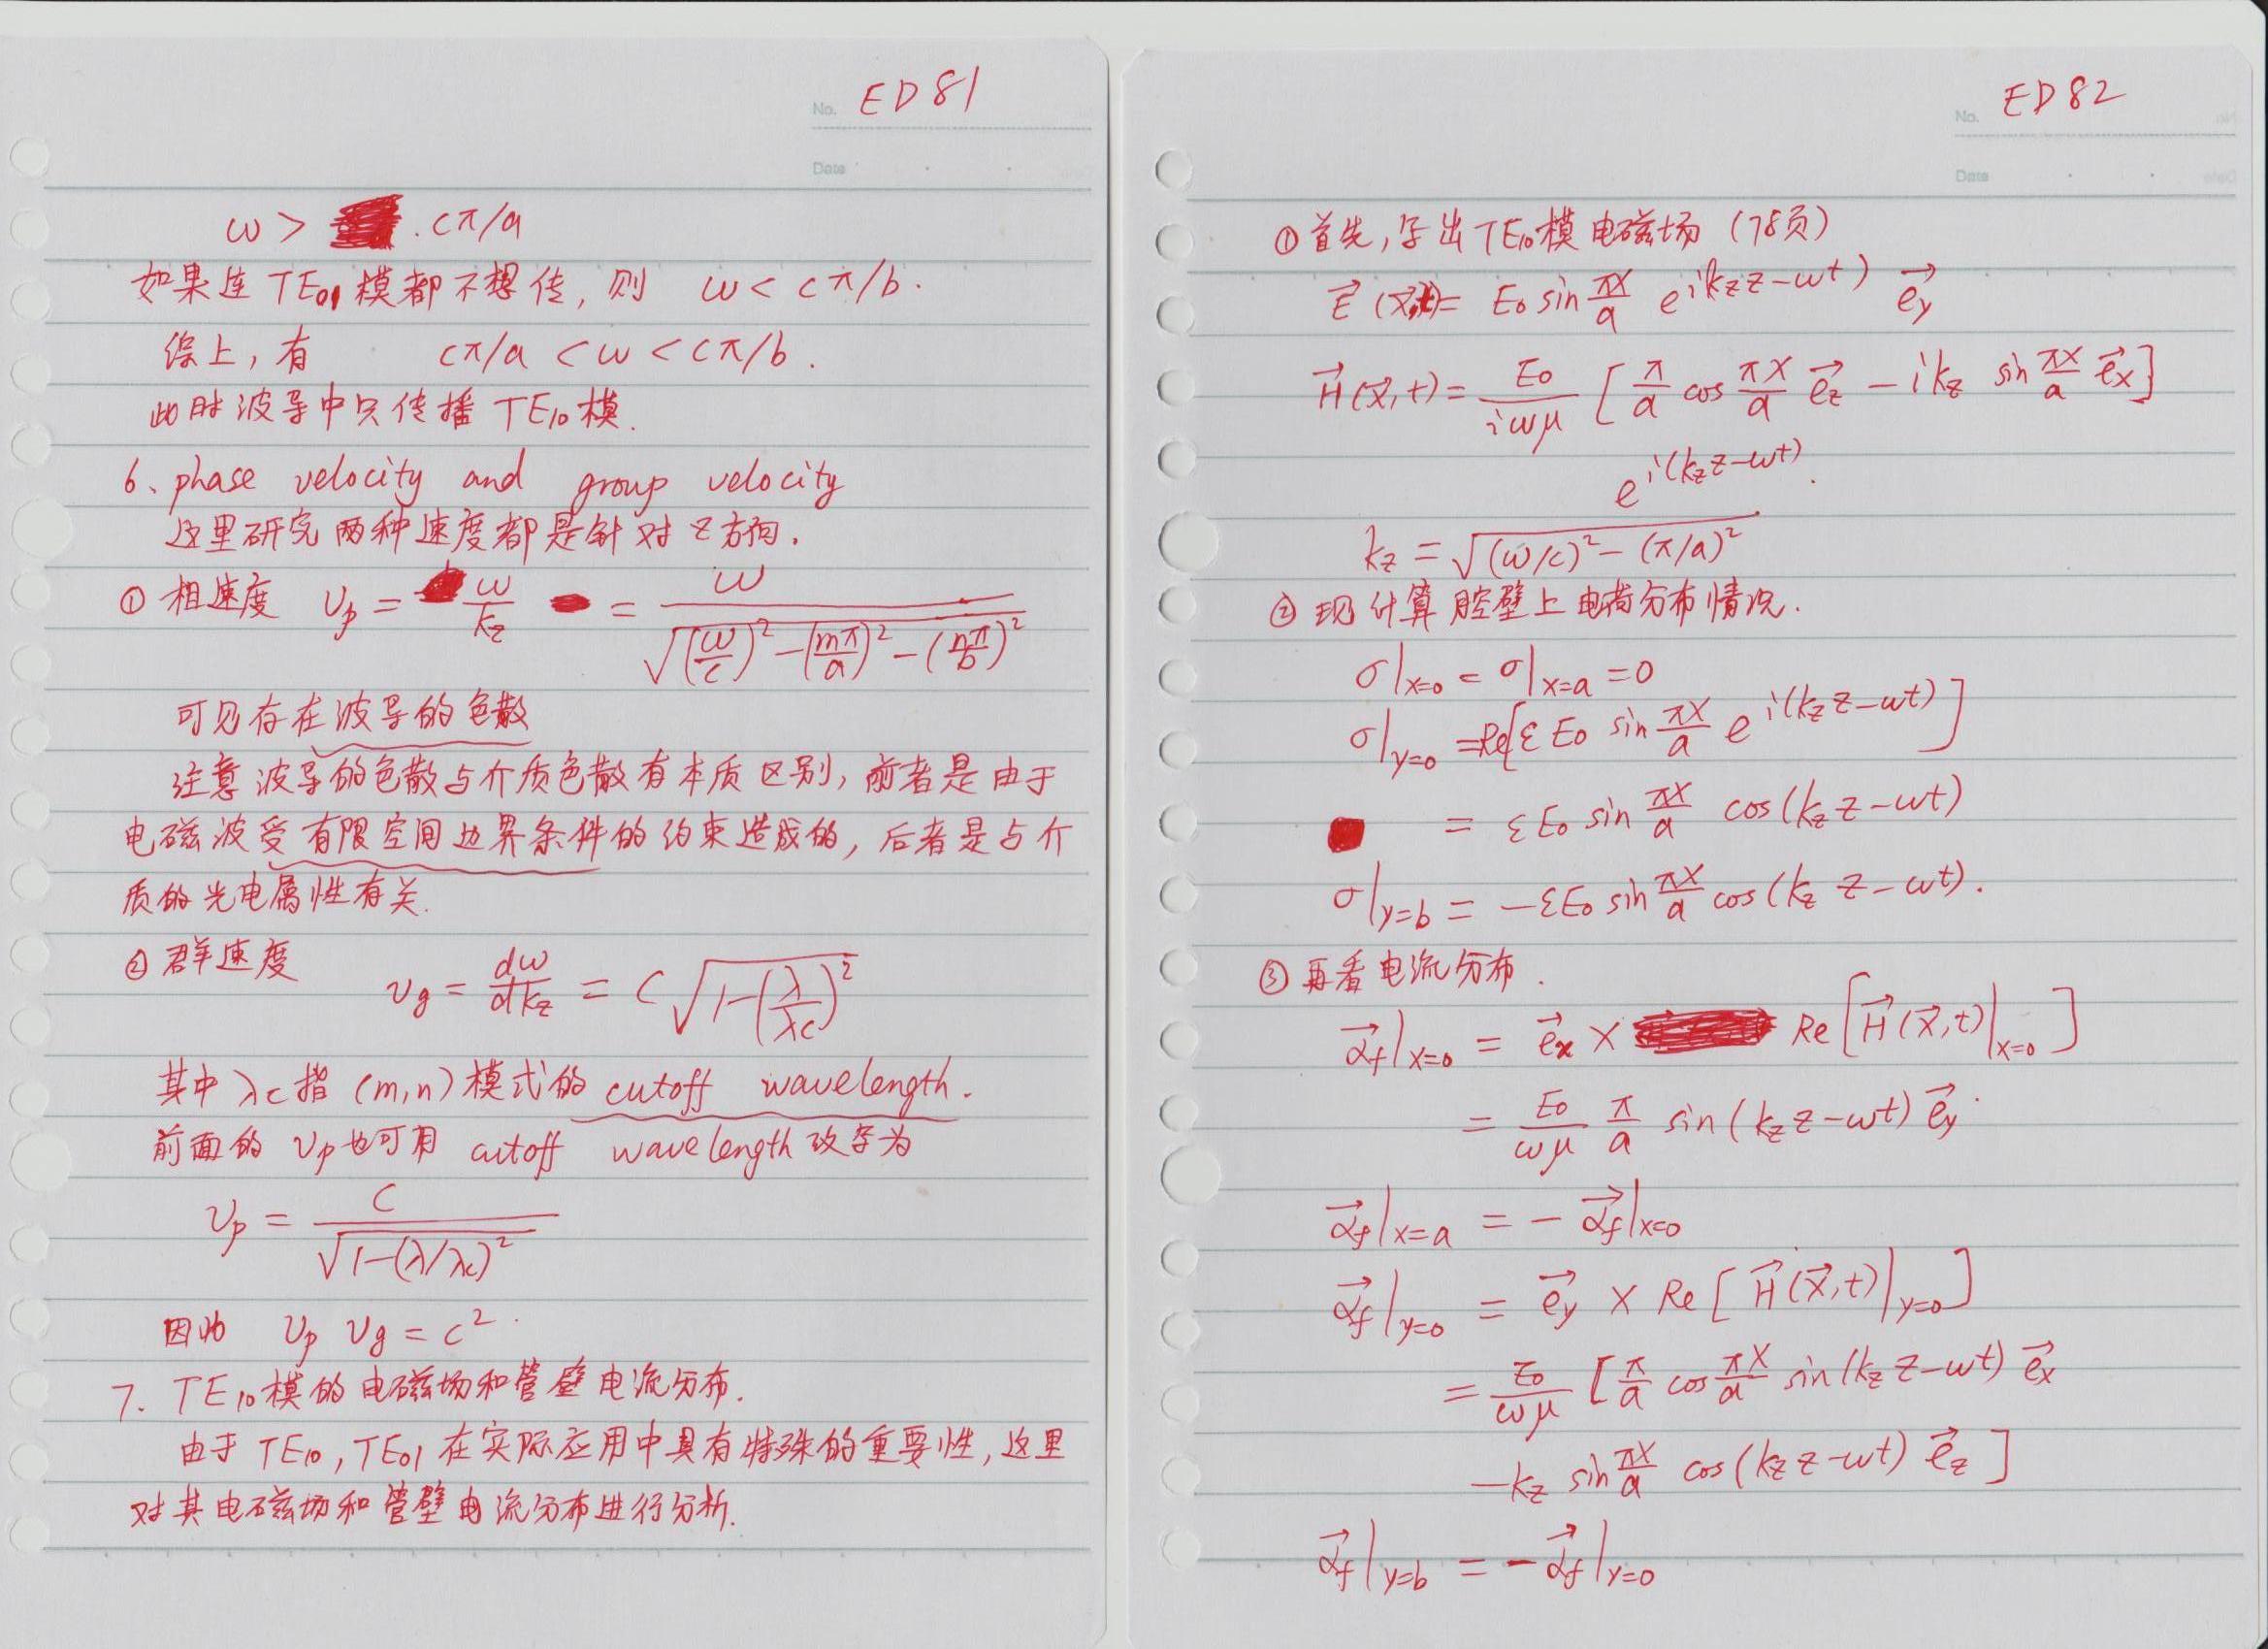 No. ED81
Date
ω > cπ/a
如果连TE01模都不想传, 则 ω < cπ/b.
综上, 有 cπ/a < ω < cπ/b.
此时波导中只传播TE10模.
6、phase velocity and group velocity
这里研究两种速度都是针对z方向.
① 相速度 υp = ω/kz = ω/√((ω/c)² − (mπ/a)² − (nπ/b)²)
可见存在波导的色散
注意波导的色散与介质色散有本质区别, 前者是由于
电磁波受有限空间边界条件的约束造成的, 后者是与介
质的光电属性有关.
② 群速度 υg = dω/dkz = c√(1−(λ/λc)²)
其中λc指(m,n)模式的cutoff wavelength.
前面的υp也可用cutoff wavelength改写为
υp = c/√(1−(λ/λc)²)
因此 υp υg = c².
7. TE10模的电磁场和管壁电流分布.
由于TE10, TE01在实际应用中具有特殊的重要性, 这里
对其电磁场和管壁电流分布进行分析.
No. ED82
Date
① 首先, 写出TE10模电磁场 (78页)
E⃗(x⃗,t) = E₀ sin πx/a e^{i(kz z−ωt)} e⃗y
H⃗(x⃗,t) = E₀/(iωμ) [π/a cos πx/a e⃗z − i kz sin πx/a e⃗x]
e^{i(kz z−ωt)}.
kz = √((ω/c)² − (π/a)²)
② 现计算腔壁上电荷分布情况.
σ|x=0 = σ|x=a = 0
σ|y=0 = Re[εE₀ sin πx/a e^{i(kz z−ωt)}]
= εE₀ sin πx/a cos(kz z−ωt)
σ|y=b = −εE₀ sin πx/a cos(kz z−ωt).
③ 再看电流分布.
α⃗f|x=0 = e⃗x × Re[H⃗(x⃗,t)|x=0]
= E₀/(ωμ) π/a sin(kz z−ωt) e⃗y.
α⃗f|x=a = − α⃗f|x=0
α⃗f|y=0 = e⃗y × Re[H⃗(x⃗,t)|y=0]
= E₀/(ωμ) [π/a cos πx/a sin(kz z−ωt) e⃗x
−kz sin πx/a cos(kz z−ωt) e⃗z]
α⃗f|y=b = −α⃗f|y=0